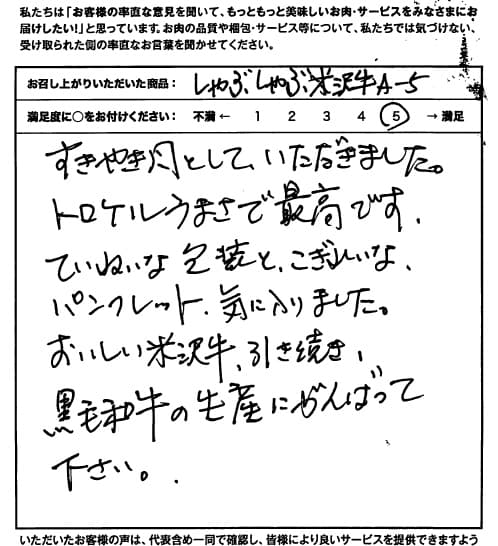 私たちは「お客様の率直な意見を聞いて、もっともっと美味しいお肉・サービスをみなさまにお
届けしたい!」と思っています。お肉の品質や梱包・サービス等について、私たちでは気づけない、
受け取られた側の率直なお言葉を聞かせてください。
お召し上がりいただいた商品: しゃぶしゃぶ米沢牛A-5
満足度に○をお付けください: 不満 ← 1 2 3 4 5 → 満足
すきやき用として、いただきました。
トロケルうまさで最高です、
ていねいな包装と、こぎれいな、
パンフレット、気に入りました。
おいしい米沢牛、引き続き、
黒毛和牛の生産にがんばって
下さい。
いただいたお客様の声は、代表含め一同で確認し、皆様により良いサービスを提供できますよう